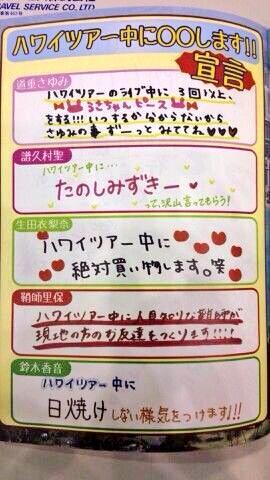 RAVEL SERVICE CO.,LTD
ハワイツアー中に〇〇します!!
宣言
道重さゆみ
ハワイツアーのライブ中に 3回以上、
うさちゃんピース
をする!!!いつするか分からないから
さゆみの事ずーっとみててね♥♥♥
譜久村聖
ハワイツアー中に…
たのしみずきー
って、沢山言ってもらう!
生田衣梨奈
ハワイツアー中に
絶対買い物します。笑
鞘師里保
ハワイツアー中に人見知りな鞘師が
現地の方のお友達をつくります!!!!
鈴木香音
ハワイツアー中に
日焼けしない様気をつけます!!!